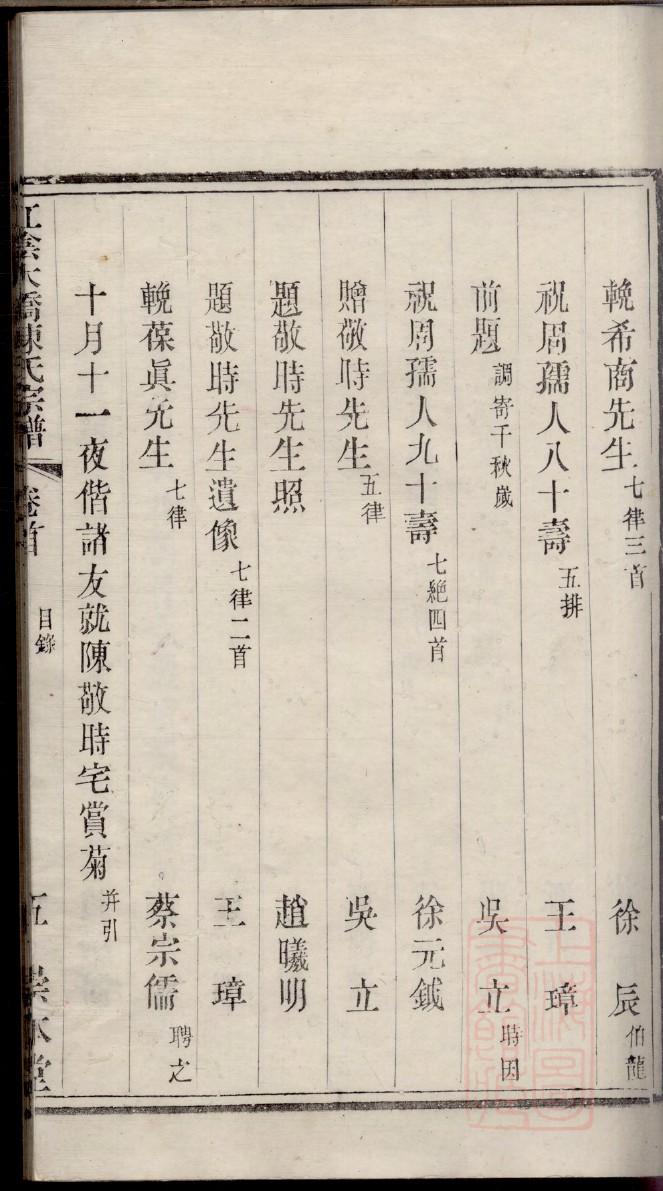 輓希商先生 七律三首 徐辰 伯龍
祝周孺人八十壽 五排 王璋
前題 調寄千秋歲 吳立 時因
祝周孺人九十壽 七絕四首 徐元鉞
贈敬時先生 五律 吳立
題敬時先生照 趙曦明
題敬時先生遺像 七律二首 王璋
輓葆眞先生 七律 蔡宗儒 聘之
十月十一夜偕諸友就陳敬時宅賞菊 并引
江陰大橋陳氏宗譜 卷首 目錄 五 崇本堂